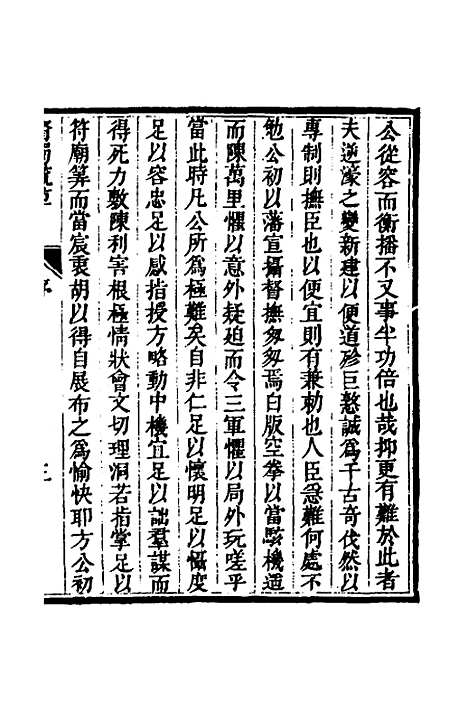 公從容而衡播不又事半功倍也哉抑更有難於此者
夫逆濠之變新建以便道殄巨憝誠為千古奇伐然以
專制則撫臣也以便宜則有兼勅也人臣急難何處不
勉公初以藩宣攝督撫匆匆焉白版空拳以當駭機遥
而陳萬里懼以意外疑廹而令三軍懼以局外玩嗟乎
當此時凡公所為極難矣自非仁足以懷明足以懾度
足以容忠足以感指授方略動中機宜足以詘羣謀而
得死力敷陳利害根極情狀會文切理洞若指掌足以
符廟筭而當宸衷胡以得自展布之為愉快耶方公初
序
三